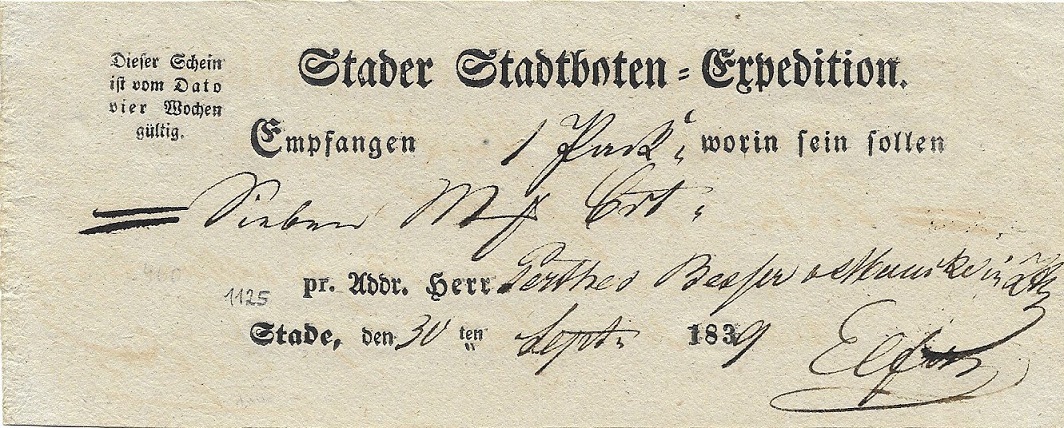 Dieser Schein
ist vom Dato
vier Wochen
gültig.
Stader Stadtboten=Expedition.
Empfangen 1 Pack, worin sein sollen
Sieben Mf Crt.
1125
pr. Addr. Herr Perthes Besser & Mauke in
Stade, den 30 ten Sept. 1839